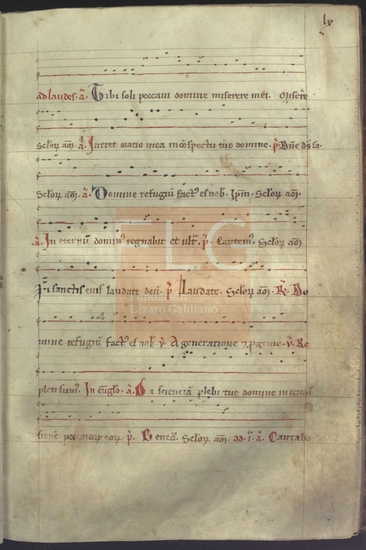 lx
ad laudes. a. Tibi soli peccavi domine miserere mei. Misere
Selor. am. a. Intret oratio mea in conspectu tuo domine. p. Dne ds sa
Selor. am. a. Domine refugiū fact' es nob. Ipm. Selor. am.
a. In eternū domin' regnabit et ult. p. Cantem'. Selor am
In sanctis eius laudate deū. p. Laudate. Selor. am. R. Do
mine refugiū fact' es nob. v. A generatione et pgenie. v. Re
pleti sum'. In eugło. a. Ad scienciā plebi tue domine in remis
sione peccatorū eorū p. Bened. Selor. am. a. Cantabo
FLG
Lázaro Galdiano